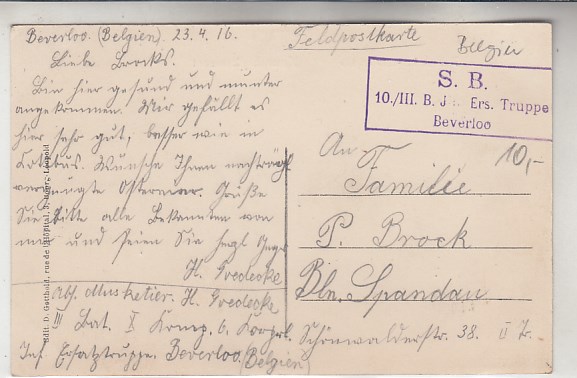 Beverloo. (Belgien). 23.4.16.
Feldpostkarte
Belgien
Liebe Brocks.
Bin hier gesund und munter
angekommen. Mir gefällt es
hier sehr gut, besser wie in
Kottbus. Wünsche Ihnen nachträgl
vergnügte Ostern. Grüße
Sie bitte alle Bekannten von
mir und seien Sie herzl
H.
Abs. Musketier. H.
III Bat. I Komp. 6. Korprl.
Inf Ersatztruppe. Beverloo.
(Belgien)
S. B.
10./III. B. J Ers. Truppe
Beverloo
10,-
An
Familie
P. Brock
Bln. Spandau
Schönwalderstr. 38. II Tr.
Edit. D. Gotthold, rue de l'Hôpital, Léopold